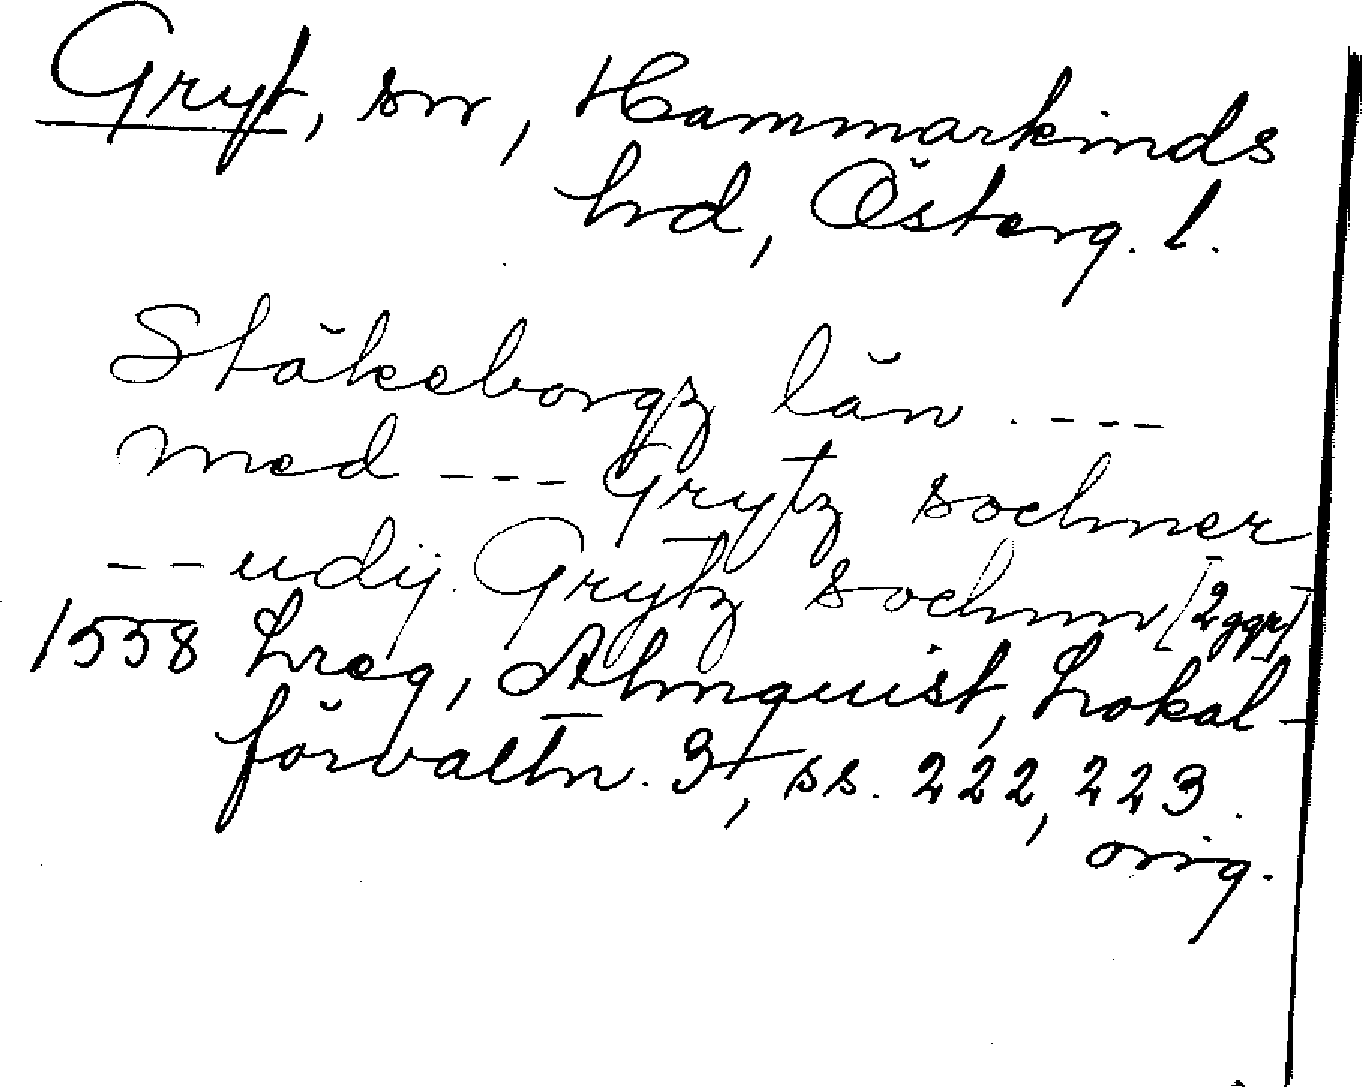 Gryt, sn, Hammarkinds
hd, Österg. l.
Stäkeborgz län . ----
med --- Grytz sochner
-- udij Grytz sochnn [2 ggr]
1558 Lreg, Almquist, Lokal-
förvaltn. 3, ss. 222, 223.
orig.